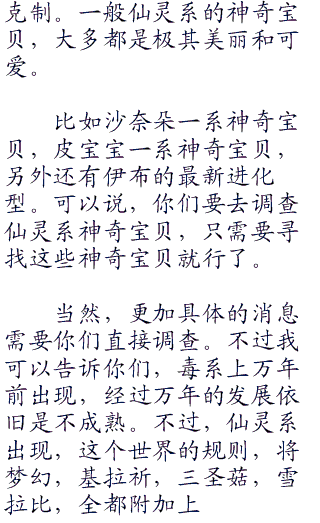 克制。一般仙灵系的神奇宝
贝，大多都是极其美丽和可
爱。
比如沙奈朵一系神奇宝
贝，皮宝宝一系神奇宝贝，
另外还有伊布的最新进化
型。可以说，你们要去调查
仙灵系神奇宝贝，只需要寻
找这些神奇宝贝就行了。
当然，更加具体的消息
需要你们直接调查。不过我
可以告诉你们，毒系上万年
前出现，经过万年的发展依
旧是不成熟。不过，仙灵系
出现，这个世界的规则，将
梦幻，基拉祈，三圣菇，雪
拉比，全都附加上